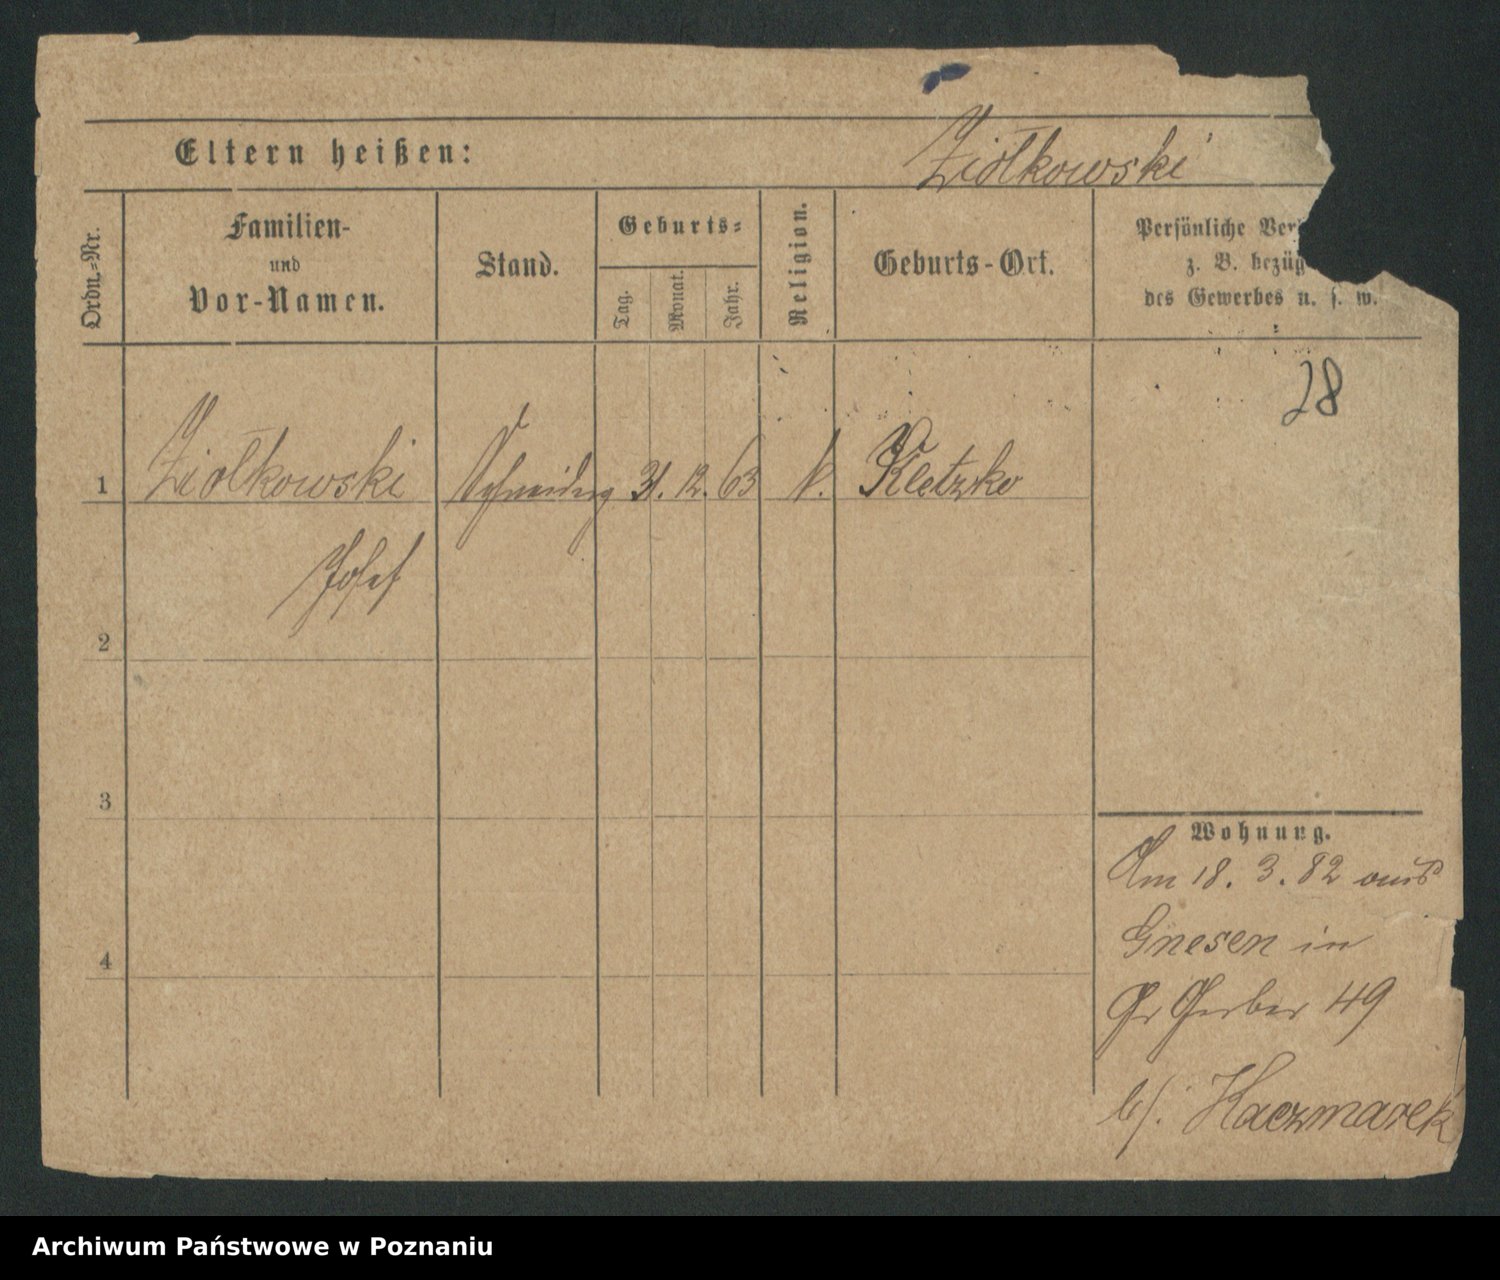 Eltern heißen:
Ziołkowski
Ordn.-Nr.
Familien-
und
Vor-Namen.
Stand.
Geburts-
Tag.
Monat.
Jahr.
Religion.
Geburts-Ort.
Persönliche Ver
z. B. bezüg
des Gewerbes u. s. w.
28
1 Ziołkowski Schneiderg 31. 12. 63 k. Kletzko
Josef
2
3
4
Wohnung.
Am 18. 3. 82 aus
Gnesen in
Gr Gerber 49
b/. Kaczmarek
Archiwum Państwowe w Poznaniu